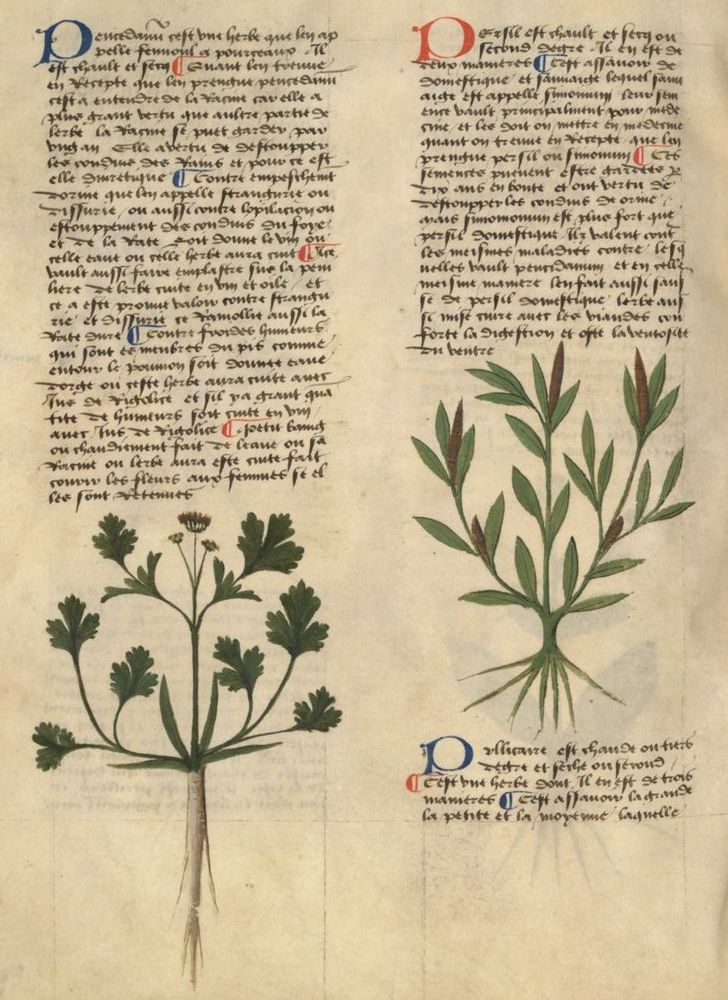 Peucedanū c'est vne herbe que len ap
pelle fenoul a pourceaux . Il
est chault et secq ¶ Quant len treuue
en Recepte que len prengne peucedanū
c'est a entendre de la Racine car elle a
plus grant vertu que aultre partie de
lerbe la Racine se puet garder par
vng an Elle a vertu de destoupper
les conduis des Rains et pour ce est
elle diuretique ¶ Contre empeschemt
dorine que len appelle strangurie ou
dissurie , ou aussi contre lopilacion ou
estouppement des conduis du foye
et de la Rate soit donne le vin ou
celle eaue ou celle herbe aura cuit ¶ Ice
vault aussi faire emplastre sus la pem
liere de lerbe cuite en vin et oile , et
ce a este proune valoir contre strangu
rie et dissurie ce Ramollie aussi la
Rate dure ¶ Contre froides humeurs
qui sont es menbres du pis comme
entour le poumon soit donnee eaue
dorge ou ceste herbe aura cuite auec
Jus de Rigolice et sil y a grant qua
tite de humeurs soit cuite en vin
auec Jus de Rigolice ¶ Petit baing
ou chaudiement fait de leaue ou sa
Racine ou lerbe aura este cuite fait
courir les fleurs aux femmes se el
les sont Retenues
PErsil est chault et secq ou
second degre . Il en est de
deux manieres ¶ Cest assauoir de
domestique et sauuaige lequel sauu
aige est appelle sinonum leur sem
ence vault principalment pour mede
cine, et les doit on mettre en medecine
quant on treuue en Recepte que len
prengne persil ou sinonum ¶ Ces
semences pueuent estre gardees p
dix ans en bonte et ont vertu de
destoupper les conduis de orine ,
mais sinomonum est plus fort que
persil domestique . Ilz valent cont
les meismes maladies contre lesq
uelles vault peucedanum et en celle
meisme maniere len fait aussi sau
se de persil domestique lerbe aus
si mise cuire auec les viandes con
forte la digestion et oste la ventosite
du ventre
Psillicaire est chaude ou tiers
degre et seche ou second
¶ Cest vne herbe dont Il en est de trois
manieres ¶ Cest assauoir la grande
la petite et la moyenne laquelle